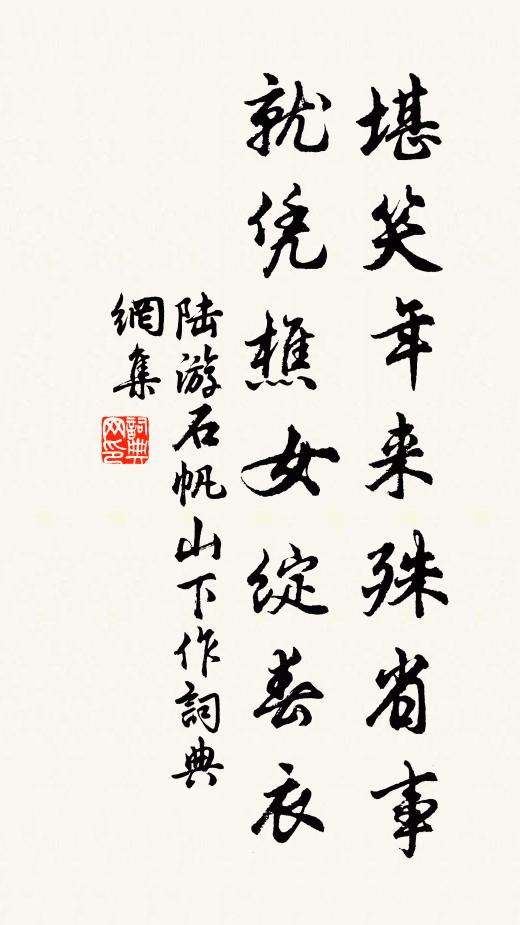 堪笑年来殊省事
就凭樵女绽春衣
陆游石帆山下作詞典
網集
詞典
网印